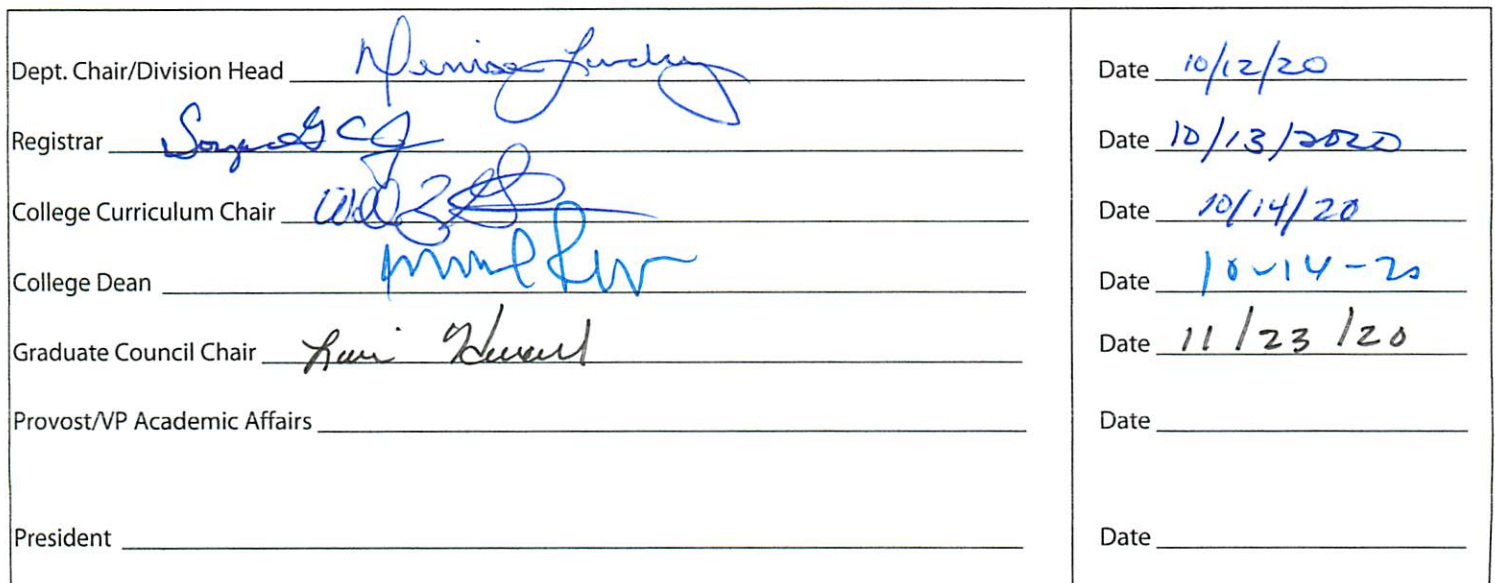 Dept. Chair/Division Head Denise Date 10/12/20
Registrar Date 10/13/2020
College Curriculum Chair Date 10/14/20
College Dean Date 10-14-20
Graduate Council Chair Date 11/23/20
Provost/VP Academic Affairs Date
President Date